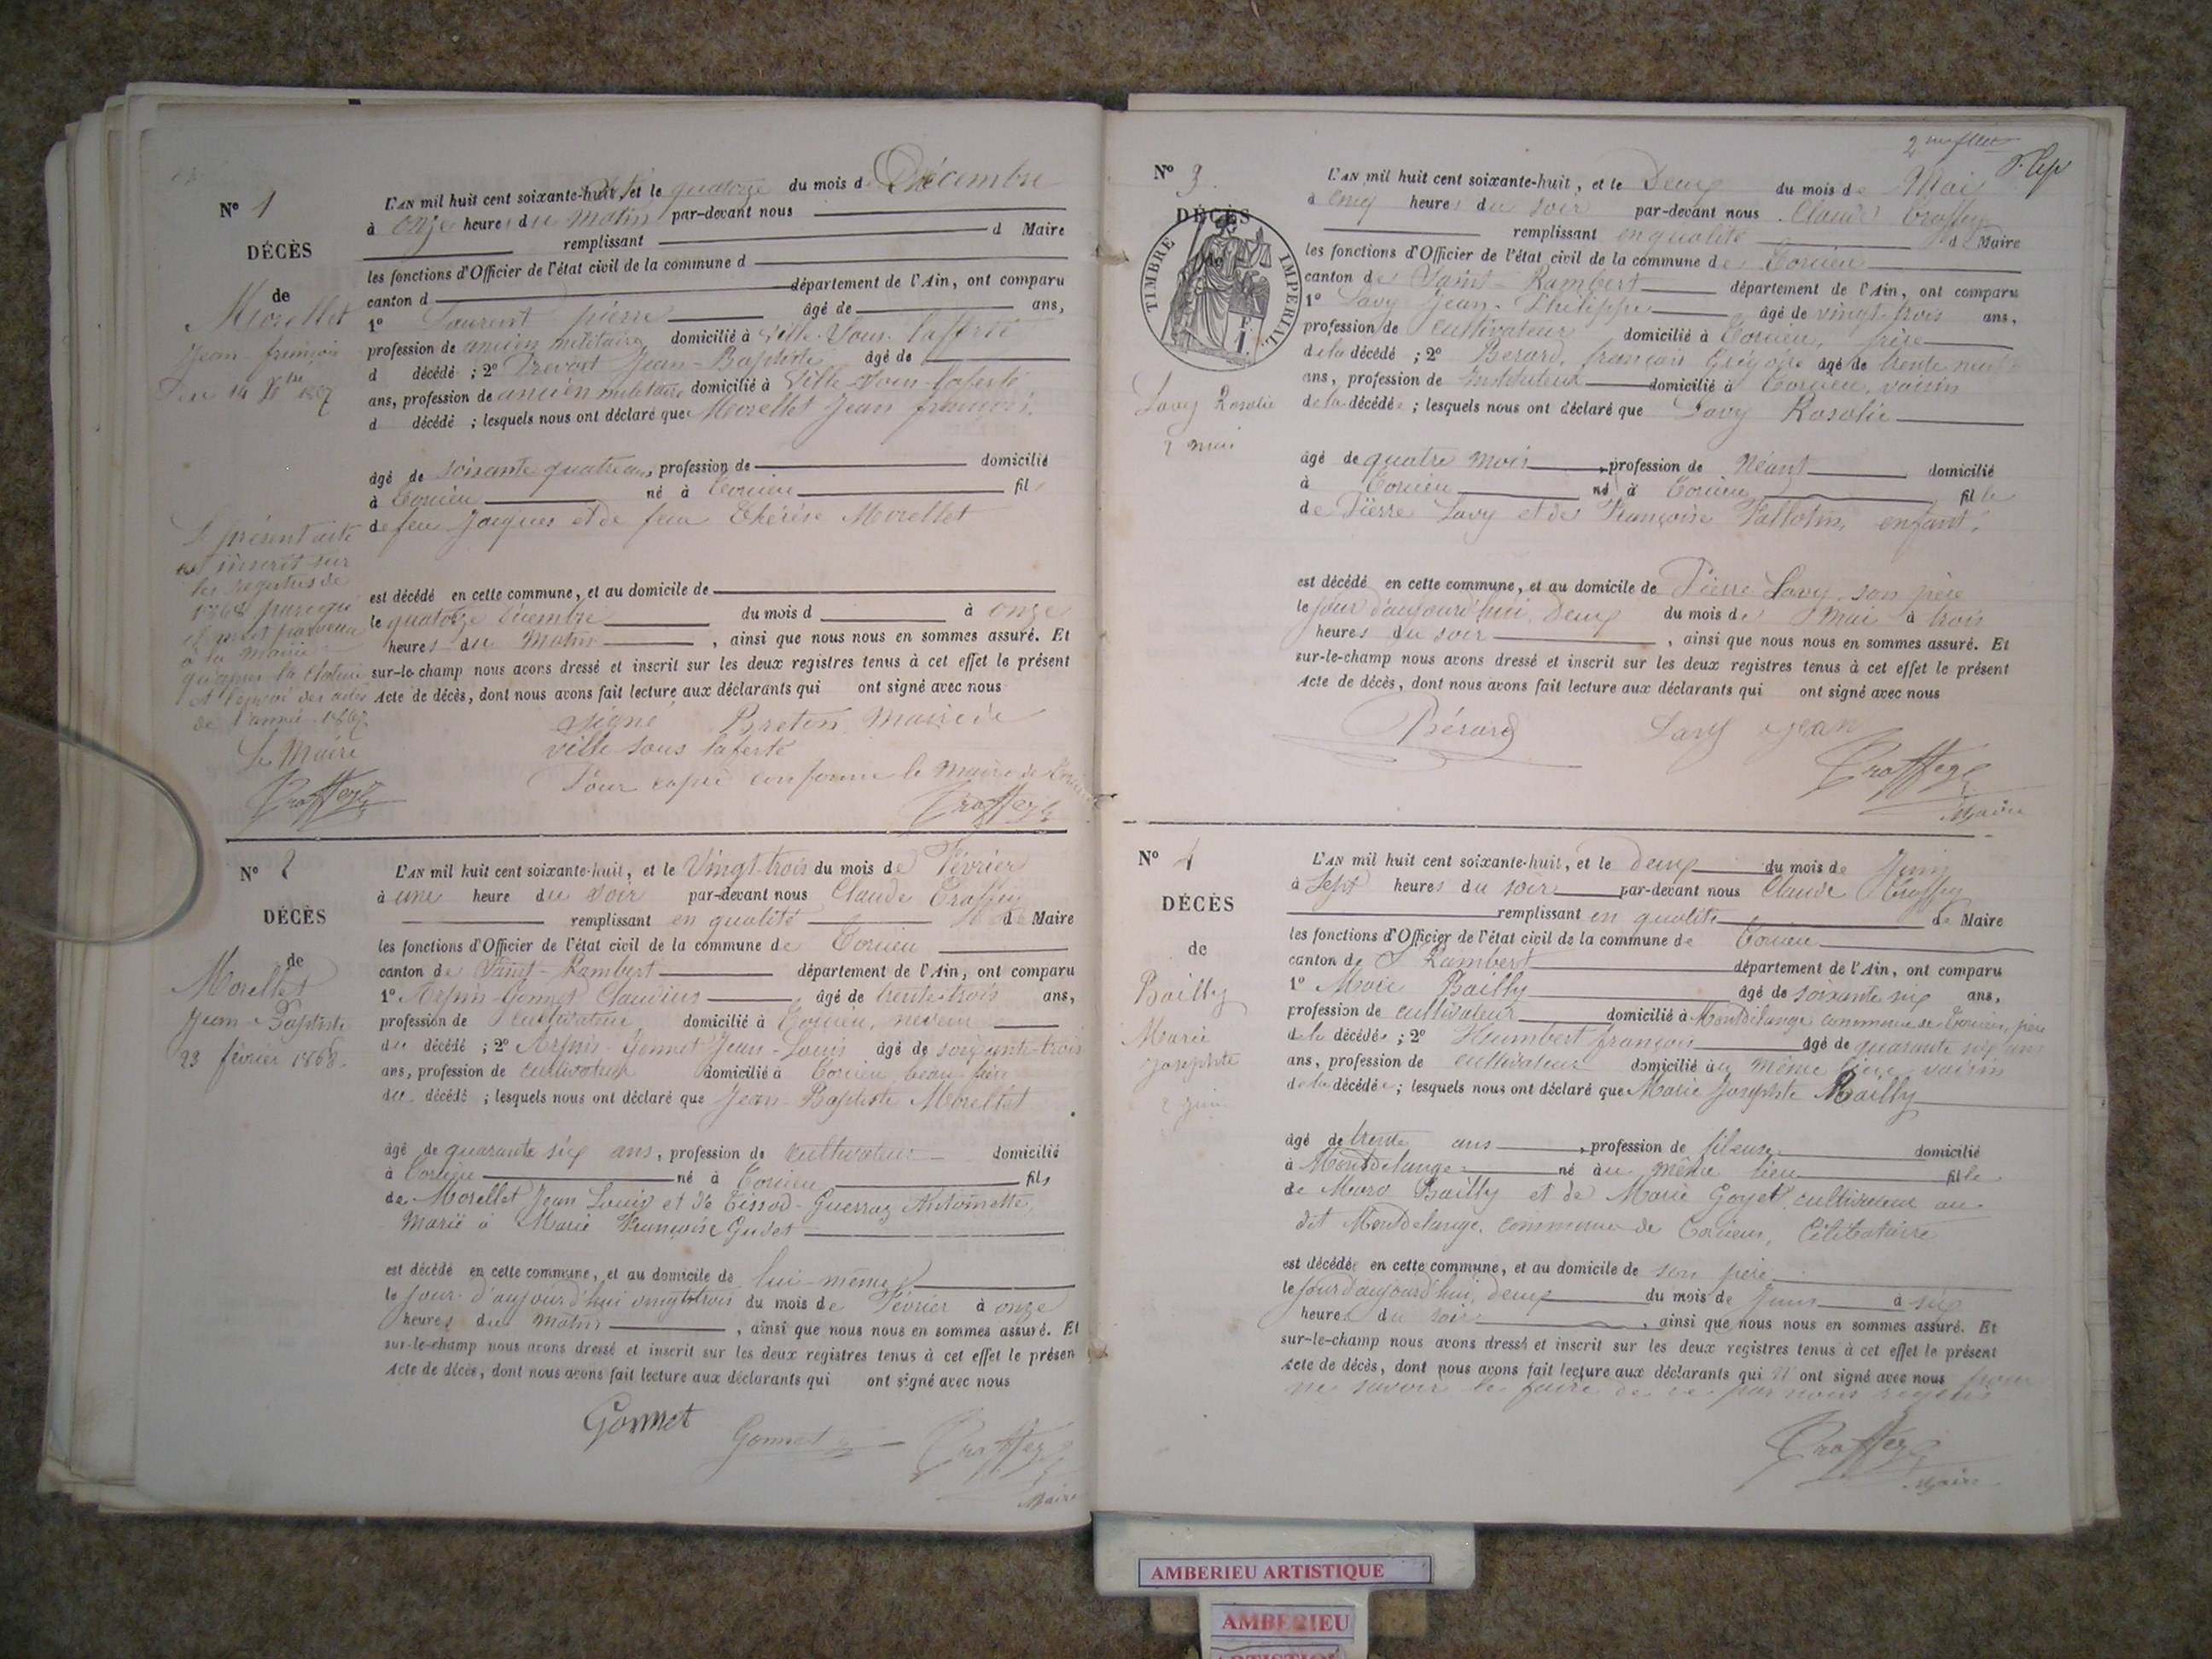 N° 1
DÉCÈS
de
Morellet
Jean-françois
Du 14 Xbre 1867
Le présent acte
est inscrit sur
les registres de
1868 parce qu'
il n'est parvenu
à la Mairie
qu'après la clôture
et l'envoi des actes
de l'année 1867
Le Maire
L'AN mil huit cent soixante-huit, et le quatorze du mois d Décembre
à onze heures du Matin par-devant nous
remplissant d Maire
les fonctions d'Officier de l'état civil de la commune d
canton d département de l'Ain, ont comparu
1° Laurent pierre âgé de ans,
profession de ancien militaire domicilié à Ville-Sous-laferté
d décédé ; 2° Prevost Jean-Baptiste âgé de
ans, profession de ancien militaire domicilié à Ville-Sous-laferté
d décédé ; lesquels nous ont déclaré que Morellet Jean françois
âgé de soixante quatre ans, profession de domicilié
à Torcieu né à Torcieu fils
de feu Jacques et de feue Thérèse Morellet
est décédé en cette commune, et au domicile de
le quatorze Décembre du mois d à onze
heures du Matin , ainsi que nous nous en sommes assuré. Et
sur-le-champ nous avons dressé et inscrit sur les deux registres tenus à cet effet le présent
Acte de décès, dont nous avons fait lecture aux déclarants qui ont signé avec nous
Signé Breton Maire de
ville sous laferté
Pour copie conforme le Maire de Torcieu
N° 2
DÉCÈS
de
Morellet
Jean-Baptiste
23 février 1868.
L'AN mil huit cent soixante-huit, et le Vingt-trois du mois de Février
à une heure du soir par-devant nous Claude Troffey
remplissant en qualité de Maire
les fonctions d'Officier de l'état civil de la commune de Torcieu
canton de Saint-Rambert département de l'Ain, ont comparu
1° Arpin-Gonnet Claudius âgé de trente-trois ans,
profession de cultivateur domicilié à Torcieu, neveu
du décédé ; 2° Arpin-Gonnet Jean-Louis âgé de soixante-trois
ans, profession de cultivateur domicilié à Torcieu beau frère
du décédé ; lesquels nous ont déclaré que Jean-Baptiste Morellet
âgé de quarante six ans, profession de cultivateur domicilié
à Torcieu né à Torcieu fils
de Morellet Jean Louis et de Tissod-Guerraz Antoinette,
Marié à Marie Françoise Gudet
est décédé en cette commune, et au domicile de lui-même
le jour d'aujourd'hui vingt trois du mois de Février à onze
heures du matin , ainsi que nous nous en sommes assuré. Et
sur-le-champ nous avons dressé et inscrit sur les deux registres tenus à cet effet le présen
Acte de décès, dont nous avons fait lecture aux déclarants qui ont signé avec nous
Gonnet Gonnet Troffey
Maire
2me fllet
N° 3
DÉCÈS
de
TIMBRE IMPÉRIAL
Lavy Rosalie
2 mai
L'AN mil huit cent soixante-huit, et le Deux du mois de Mai
à cinq heures du soir par-devant nous Claude Troffey
remplissant en qualité de Maire
les fonctions d'Officier de l'état civil de la commune de Torcieu
canton de Saint-Rambert département de l'Ain, ont comparu
1° Lavy Jean-Philippe âgé de vingt-trois ans,
profession de cultivateur domicilié à Torcieu, frère
de la décédé ; 2° Berard, françois Grégoire âgé de trente neuf
ans, profession de Instituteur domicilié à Torcieu, voisin
de la décédée ; lesquels nous ont déclaré que Lavy Rosalie
âgé de quatre mois , profession de Néant domicilié
à Torcieu né à Torcieu fille
de Pierre Lavy et de Françoise enfant.
est décédé en cette commune, et au domicile de Pierre Lavy, son père
le jour d'aujourd'hui, Deux du mois de Mai à trois
heures du soir , ainsi que nous nous en sommes assuré. Et
sur-le-champ nous avons dressé et inscrit sur les deux registres tenus à cet effet le présent
Acte de décès, dont nous avons fait lecture aux déclarants qui ont signé avec nous
Bérard Lavy Jean
Troffey
Maire
N° 4
DÉCÈS
de
Bailly
Marie
Josephte
2 Juin
L'AN mil huit cent soixante-huit, et le deux du mois de Juin
à Sept heures du soir par-devant nous Claude Troffey
remplissant en qualité de Maire
les fonctions d'Officier de l'état civil de la commune de Torcieu
canton de St Rambert département de l'Ain, ont comparu
1° Bailly âgé de soixante six ans,
profession de cultivateur domicilié à Montdelange commune de Torcieu, père
de la décédée ; 2° Humbert françois âgé de quarante six ans
ans, profession de cultivateur domicilié au même lieu, voisin
de la décédée ; lesquels nous ont déclaré que Marie Josephte Bailly
âgé de trente ans , profession de fileuse domicilié
à Montdelange né au même lieu fille
de Bailly et de Marie Goyet, cultivateur au
dit Montdelange, commune de Torcieu, Célibataire
est décédée en cette commune, et au domicile de son père
le jour d'aujourd'hui, deux du mois de Juin à six
heures du soir , ainsi que nous nous en sommes assuré. Et
sur-le-champ nous avons dressé et inscrit sur les deux registres tenus à cet effet le présent
Acte de décès, dont nous avons fait lecture aux déclarants qui n'ont signé avec nous pour
ne savoir le faire de ce par nous requis
Troffey
Maire
AMBERIEU ARTISTIQUE
AMBERIEU
ARTISTIQUE